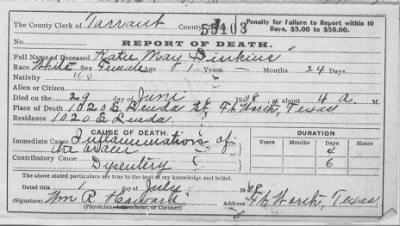 To the County Clerk of Tarrant County: 55103 Penalty for Failure to Report within 10 Days, $5.00 to $50.00.
REPORT OF DEATH.
Full Name of Deceased Katie May Dinkins
Race White Sex Female Age 1 Years Months 24 Days
Nativity U S
Alien or Citizen
Died on the 29 day of June 1908 at about 4 a. M.
Place of Death 1020 E. Leuda St Ft Worth, Texas
Residence 1020 E Leuda
CAUSE OF DEATH. DURATION
Immediate Cause Inflammation of Days
the brain 4
Contributory Cause Days
Dysentery 6
The above stated particulars are true to the best of my knowledge and belief.
Dated this 1 day of July 1908
(Signature) Wm R. Howard Address Ft Worth, Texas
(Physician, or Coroner)